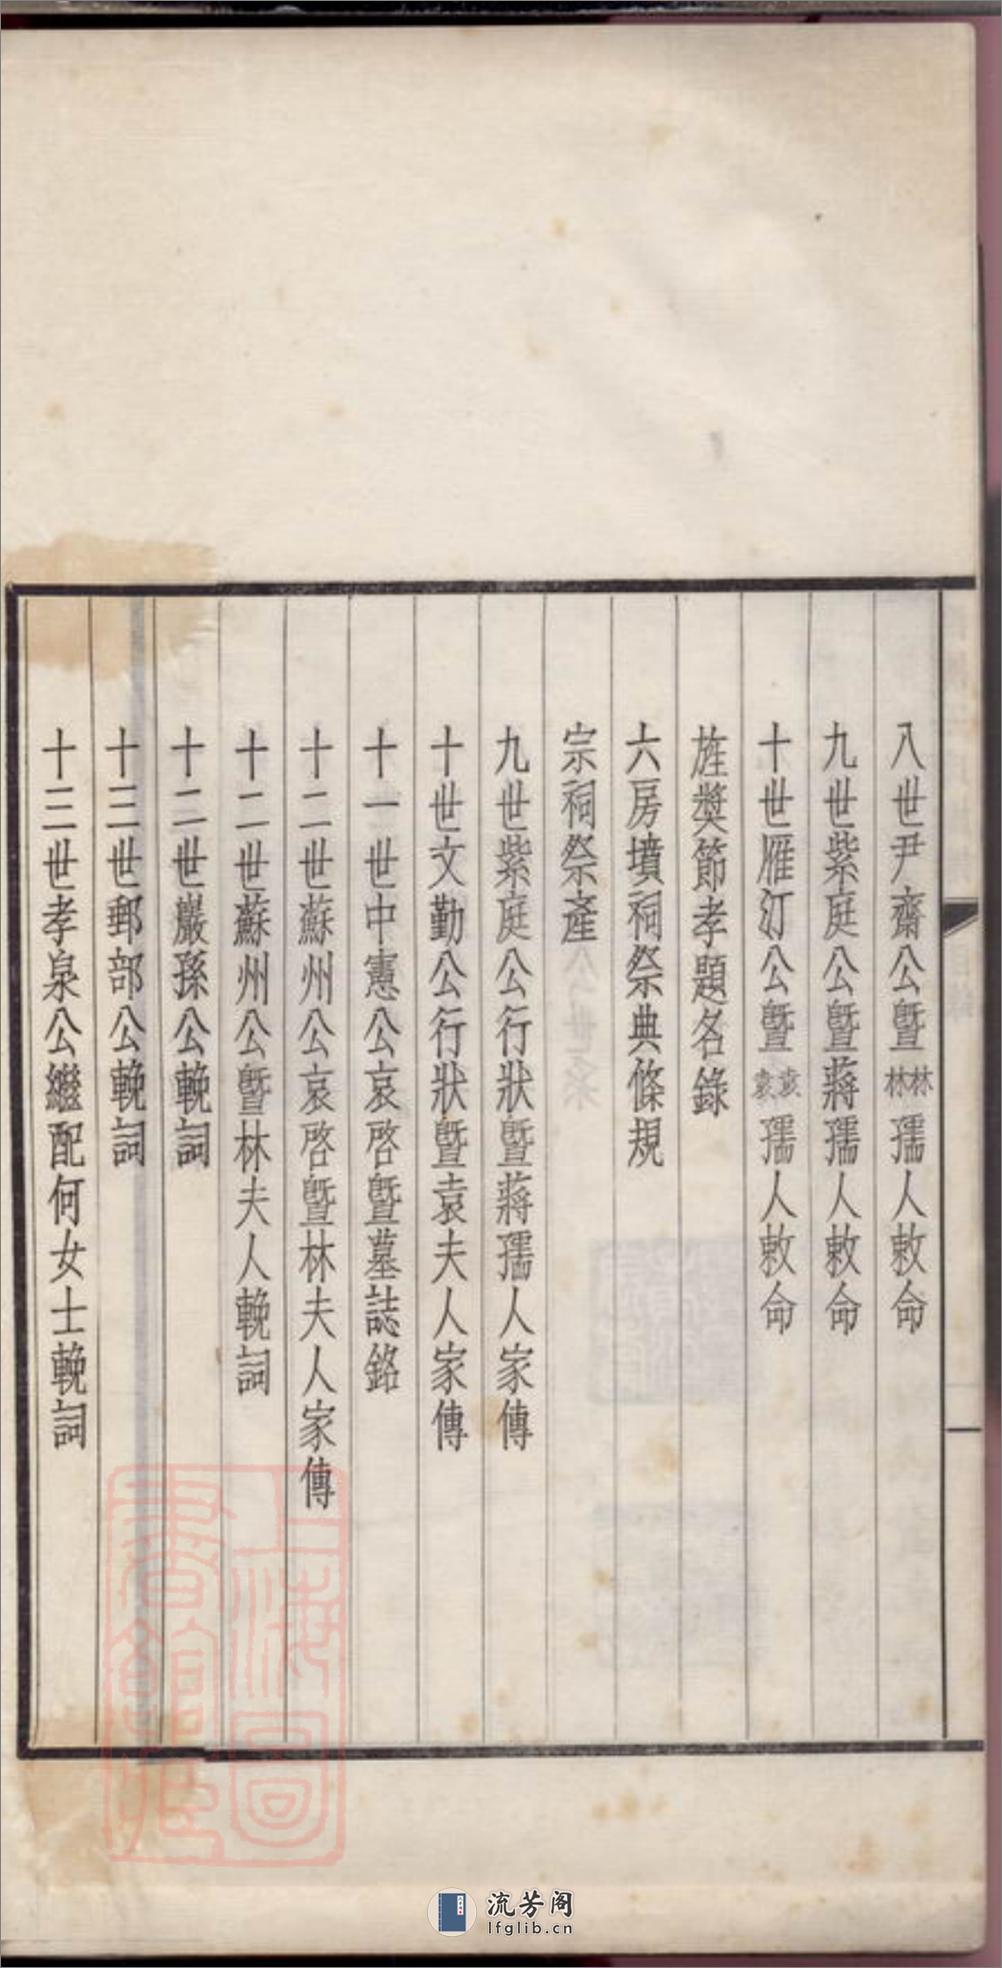 八世尹齋公暨林林孺人敕命
九世紫庭公暨蔣孺人敕命
十世雁汀公暨袁袁孺人敕命
旌獎節孝題名錄
六房墳祠祭典條規
宗祠祭產
九世紫庭公行狀暨蔣孺人家傳
十世文勤公行狀暨袁夫人家傳
十一世中憲公哀啓暨墓誌銘
十二世蘇州公哀啓暨林夫人家傳
十二世蘇州公暨林夫人輓詞
十二世巖孫公輓詞
十三世郵部公輓詞
十三世孝泉公繼配何女士輓詞
上海圖書館藏
流芳阁
lfglib.cn